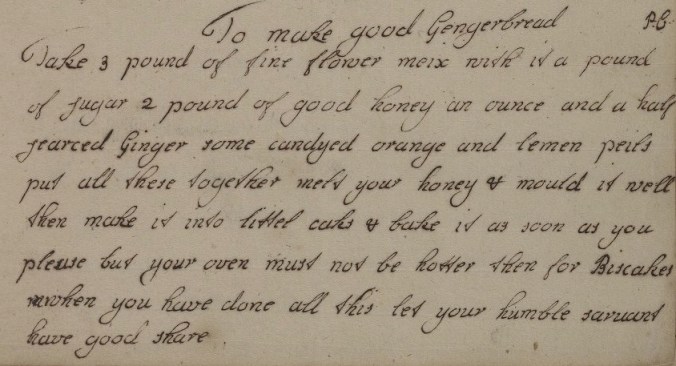 To make good Gengerbread P.C.
Take 3 pound of fine flower meix with it a pound
of sugar 2 pound of good honey an ounce and a half
searced Ginger some candyed orange and lemen peils
put all these together melt your honey & mould it well
then make it into littel caks & bake it as soon as you
please but your oven must not be hotter then for Biscakes
when you have done all this let your humble saruant
have good share